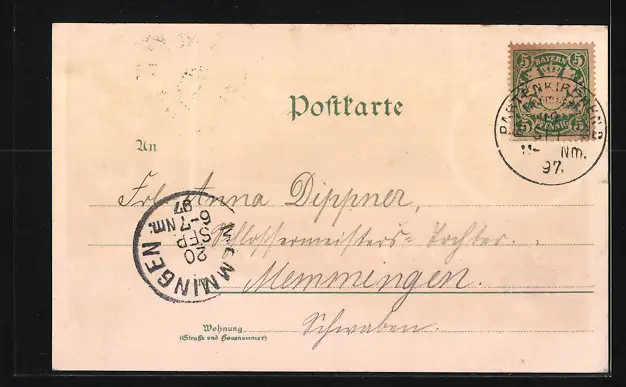 Postkarte
5 BAYERN 5
5 PFENNIG 5
PARTENKIRCHEN
Nm.
97.
An
Frl. Anna Dippner,
Schlossermeisters=Tochter.
Memmingen.
Schwaben.
MEMMINGEN
20
SEP.
6-7 Nm.
97
Wohnung
(Straße und Hausnummer)